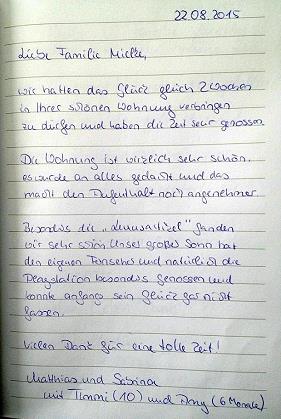 22.08.2015
Liebe Familie Mielke,
wir hatten das Glück gleich 2 Wochen
in Ihrer schönen Wohnung verbringen
zu dürfen und haben die Zeit sehr genossen.
Die Wohnung ist wirklich sehr schön,
es wurde an alles gedacht und das
macht den Aufenthalt noch angenehmer.
Besonders die fanden
wir sehr schön. Unser großer Sohn hat
den eigenen Fernseher und natürlich die
Playstation besonders genossen und
konnte anfangs sein Glück gar nicht
fassen.
Vielen Dank für eine tolle Zeit!
Matthias und Sabrina
mit Timmi (10) und (6 Monate)